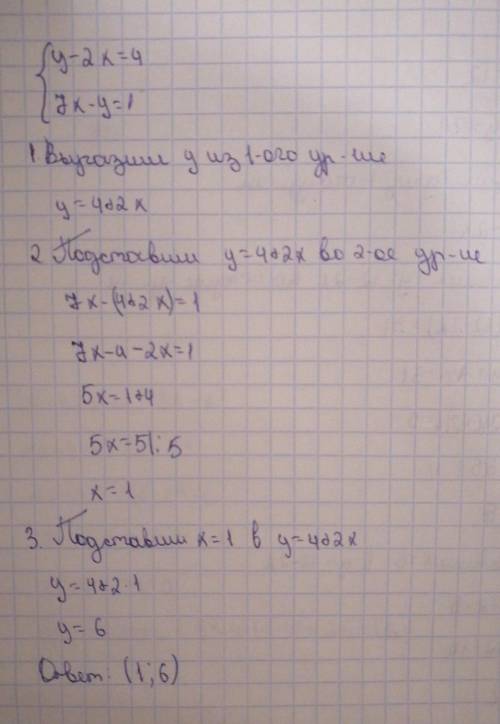 { y-2x=4
7x-y=1
1 Выразим y из 1-ого ур-ие
y=4+2x
2 Подставим y=4+2x во 2-ое ур-ие
7x-(4+2x)=1
7x-4-2x=1
5x=1+4
5x=5|:5
x=1
3. Подставим x=1 в y=4+2x
y=4+2·1
y=6
Ответ: (1;6)